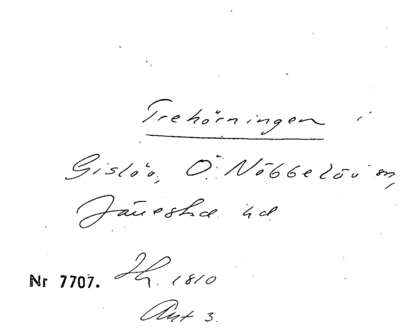 Trehörningen i
Gislöv, Ö Nöbbelöv sn,
Järrestad hd
Nr 7707. Jh. 1810
Akt 3.